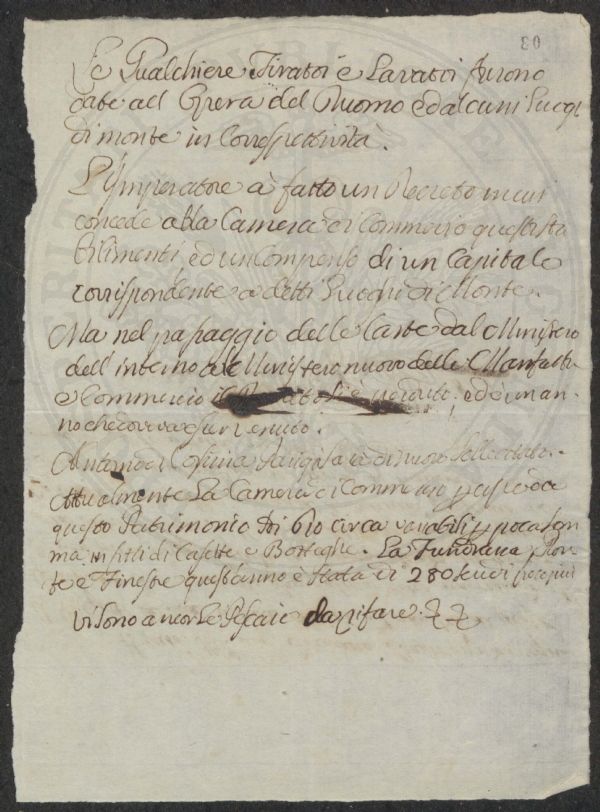 80
Le Gualchiere Tiratoi e Lavatoi furono
date all Opera del Duomo ed alcuni Luogi
di monte in Correspettività.
L'Imperatore à fatto un Decreto in cui
concede alla Camera di Commercio questi sta
bilimenti ed un Compenso di un Capitale
corrispondente a detti Luoghi di Monte.
Ma nel passaggio delle Carte dal Ministero
dell'interno al Ministero nuovo delle Manfatt
e Commercio il è perduto ed è un an-
no che doveva esser venuto.
di nuovo sollecitato.
Attualmente La Camera di Commercio
questo Patrimonio di circa
ma in fitti di Casette e Botteghe. La Fundiaria e Por
te e Finestre quest'anno è stata di 280 scudi
vi sono ancor Le Pescaie da rifare.